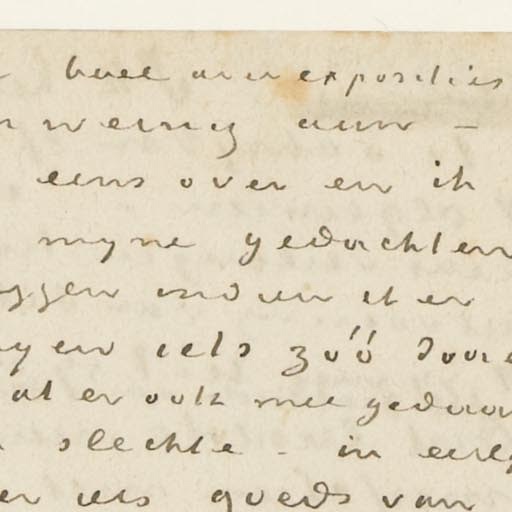 heel aan exposities
weinig aan –
eens over en ik
myne gedachten
ggen indien it er
yen iets zóó door
at er ook mee gedaan
slechte – in
er iets goeds van